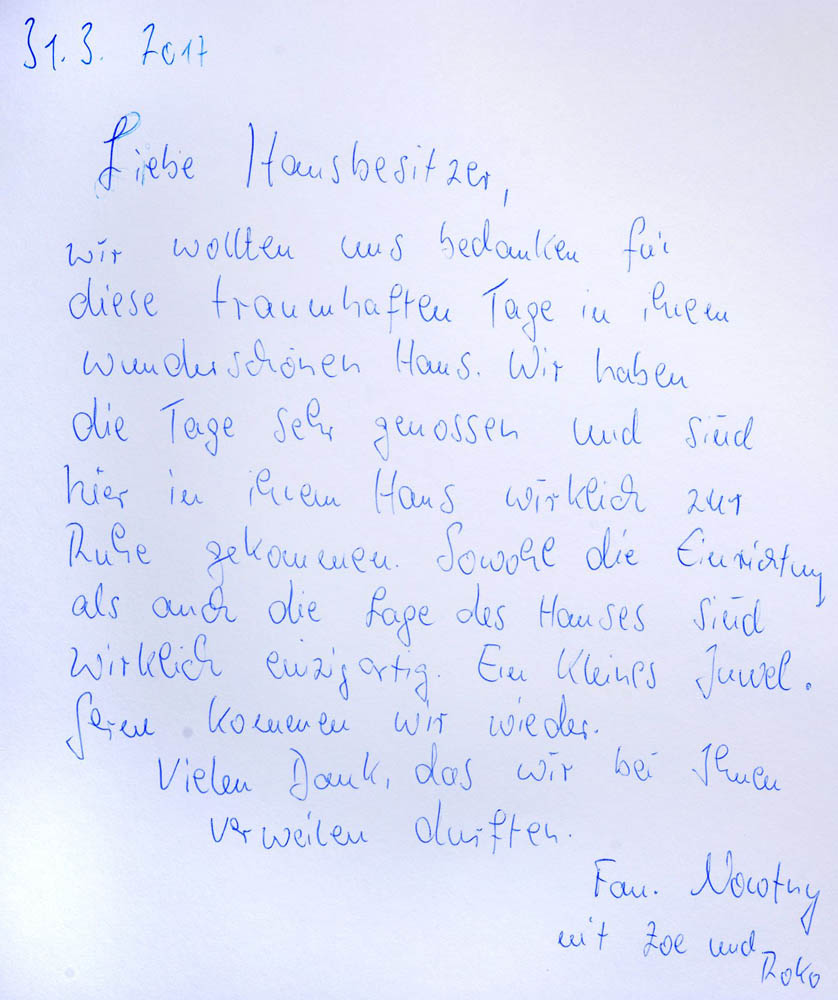 31.3. 2017
Liebe Hausbesitzer,
wir wollten uns bedanken für
diese traumhaften Tage in ihrem
wunderschönen Haus. Wir haben
die Tage sehr genossen und sind
hier in ihrem Haus wirklich zur
Ruhe gekommen. Sowohl die Einrichtung
als auch die Lage des Hauses sind
wirklich einzigartig. Ein kleines Juwel.
Gerne kommen wir wieder.
Vielen Dank, das wir bei Ihnen
verweilen durften.
Fam. Nowotny
mit Zoe und
Roko